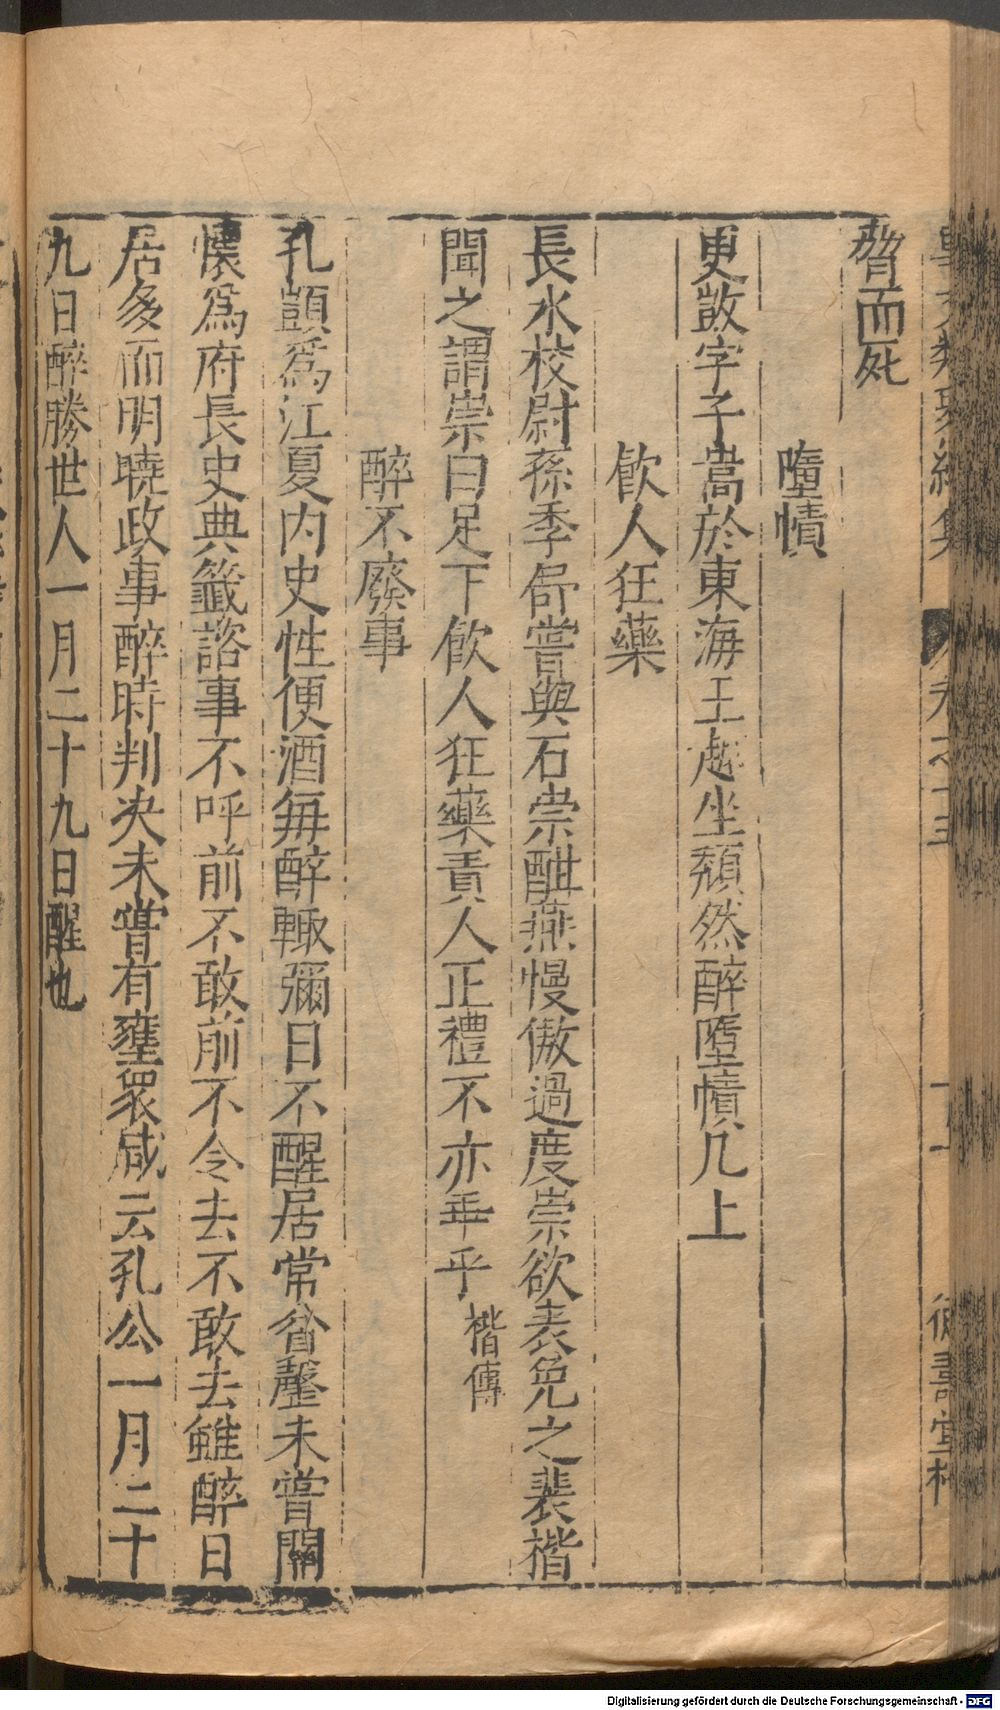 脅而死
墮幘
更敳字子嵩於東海王越坐頹然醉墮幘几上
飲人狂藥
長水校尉孫季舒嘗與石崇酣燕慢傲過度崇欲表免之裴楷
聞之謂崇曰足下飲人狂藥責人正禮不亦乖乎楷傳
醉不廢事
孔顗爲江夏內史性便酒每醉輙彌日不醒居常貧罄未嘗關
懷爲府長史典籤諮事不呼前不敢前不令去不敢去雖醉日
居多而明曉政事醉時判决未嘗有壅衆咸云孔公一月二十
九日醉勝世人一月二十九日醒也
Digitalisierung gefördert durch die Deutsche Forschungsgemeinschaft - DFG